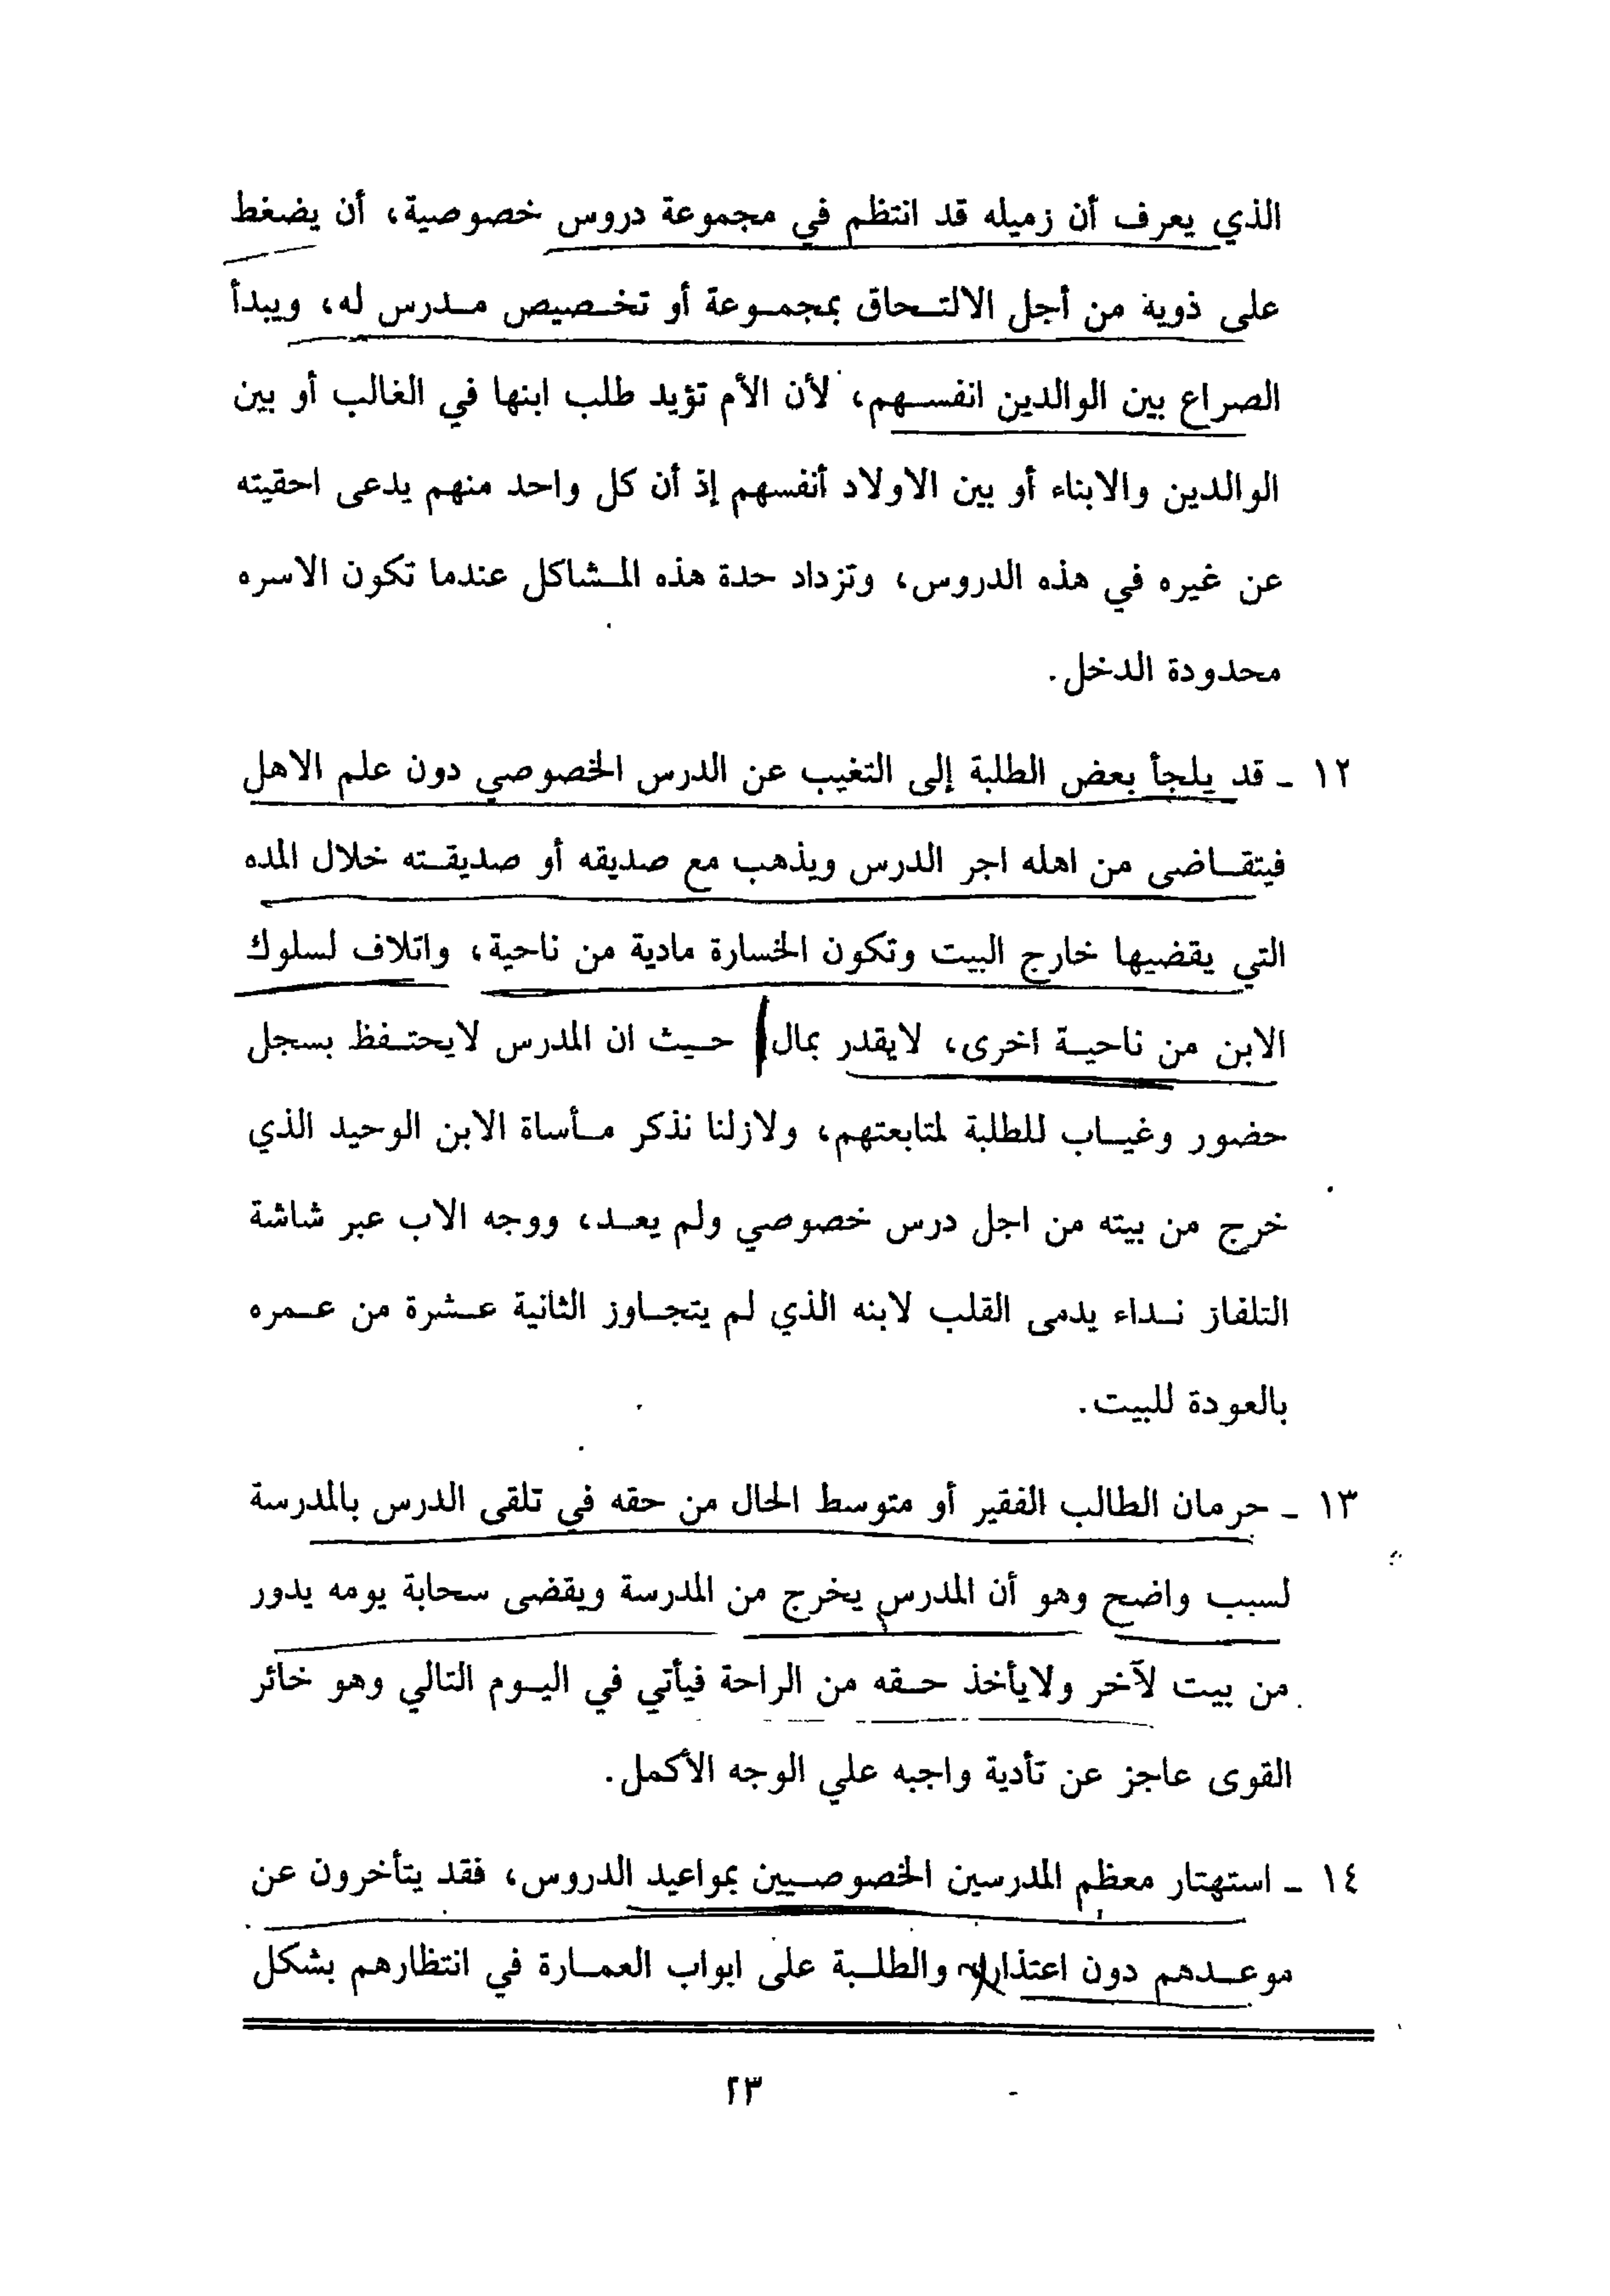 الذي يعرف أن زميله قد انتظم في مجموعة دروس خصوصية، أن يضغط
على ذوية من أجل الالتحاق بمجموعة أو تخصيص مدرس له، ويبدأ
الصراع بين الوالدين انفسهم، لأن الأم تؤيد طلب ابنها في الغالب أو بين
الوالدين والابناء أو بين الاولاد أنفسهم إذ أن كل واحد منهم يدعى احقيته
عن غيره في هذه الدروس، وتزداد حدة هذه المشاكل عندما تكون الاسره
محدودة الدخل.
١٢ ـ قد يلجأ بعض الطلبة إلى التغيب عن الدرس الخصوصي دون علم الاهل
فيتقاضى من اهله اجر الدرس ويذهب مع صديقه أو صديقته خلال المده
التي يقضيها خارج البيت وتكون الخسارة مادية من ناحية، واتلاف لسلوك
الابن من ناحية اخرى، لايقدر بمال حيث ان المدرس لايحتفظ بسجل
حضور وغياب للطلبة لمتابعتهم، ولازلنا نذكر مأساة الابن الوحيد الذي
خرج من بيته من اجل درس خصوصي ولم يعد، ووجه الاب عبر شاشة
التلفاز نداء يدمى القلب لابنه الذي لم يتجاوز الثانية عشرة من عمره
بالعودة للبيت.
١٣ ـ حرمان الطالب الفقير أو متوسط الحال من حقه في تلقى الدرس بالمدرسة
لسبب واضح وهو أن المدرس يخرج من المدرسة ويقضى سحابة يومه يدور
من بيت لآخر ولايأخذ حقه من الراحة فيأتي في اليوم التالي وهو خائر
القوى عاجز عن تأدية واجبه علي الوجه الأكمل.
١٤ ـ استهتار معظم المدرسين الخصوصيين بمواعيد الدروس، فقد يتأخرون عن
موعدهم دون اعتذار والطلبة على ابواب العمارة في انتظارهم بشكل
٢٣